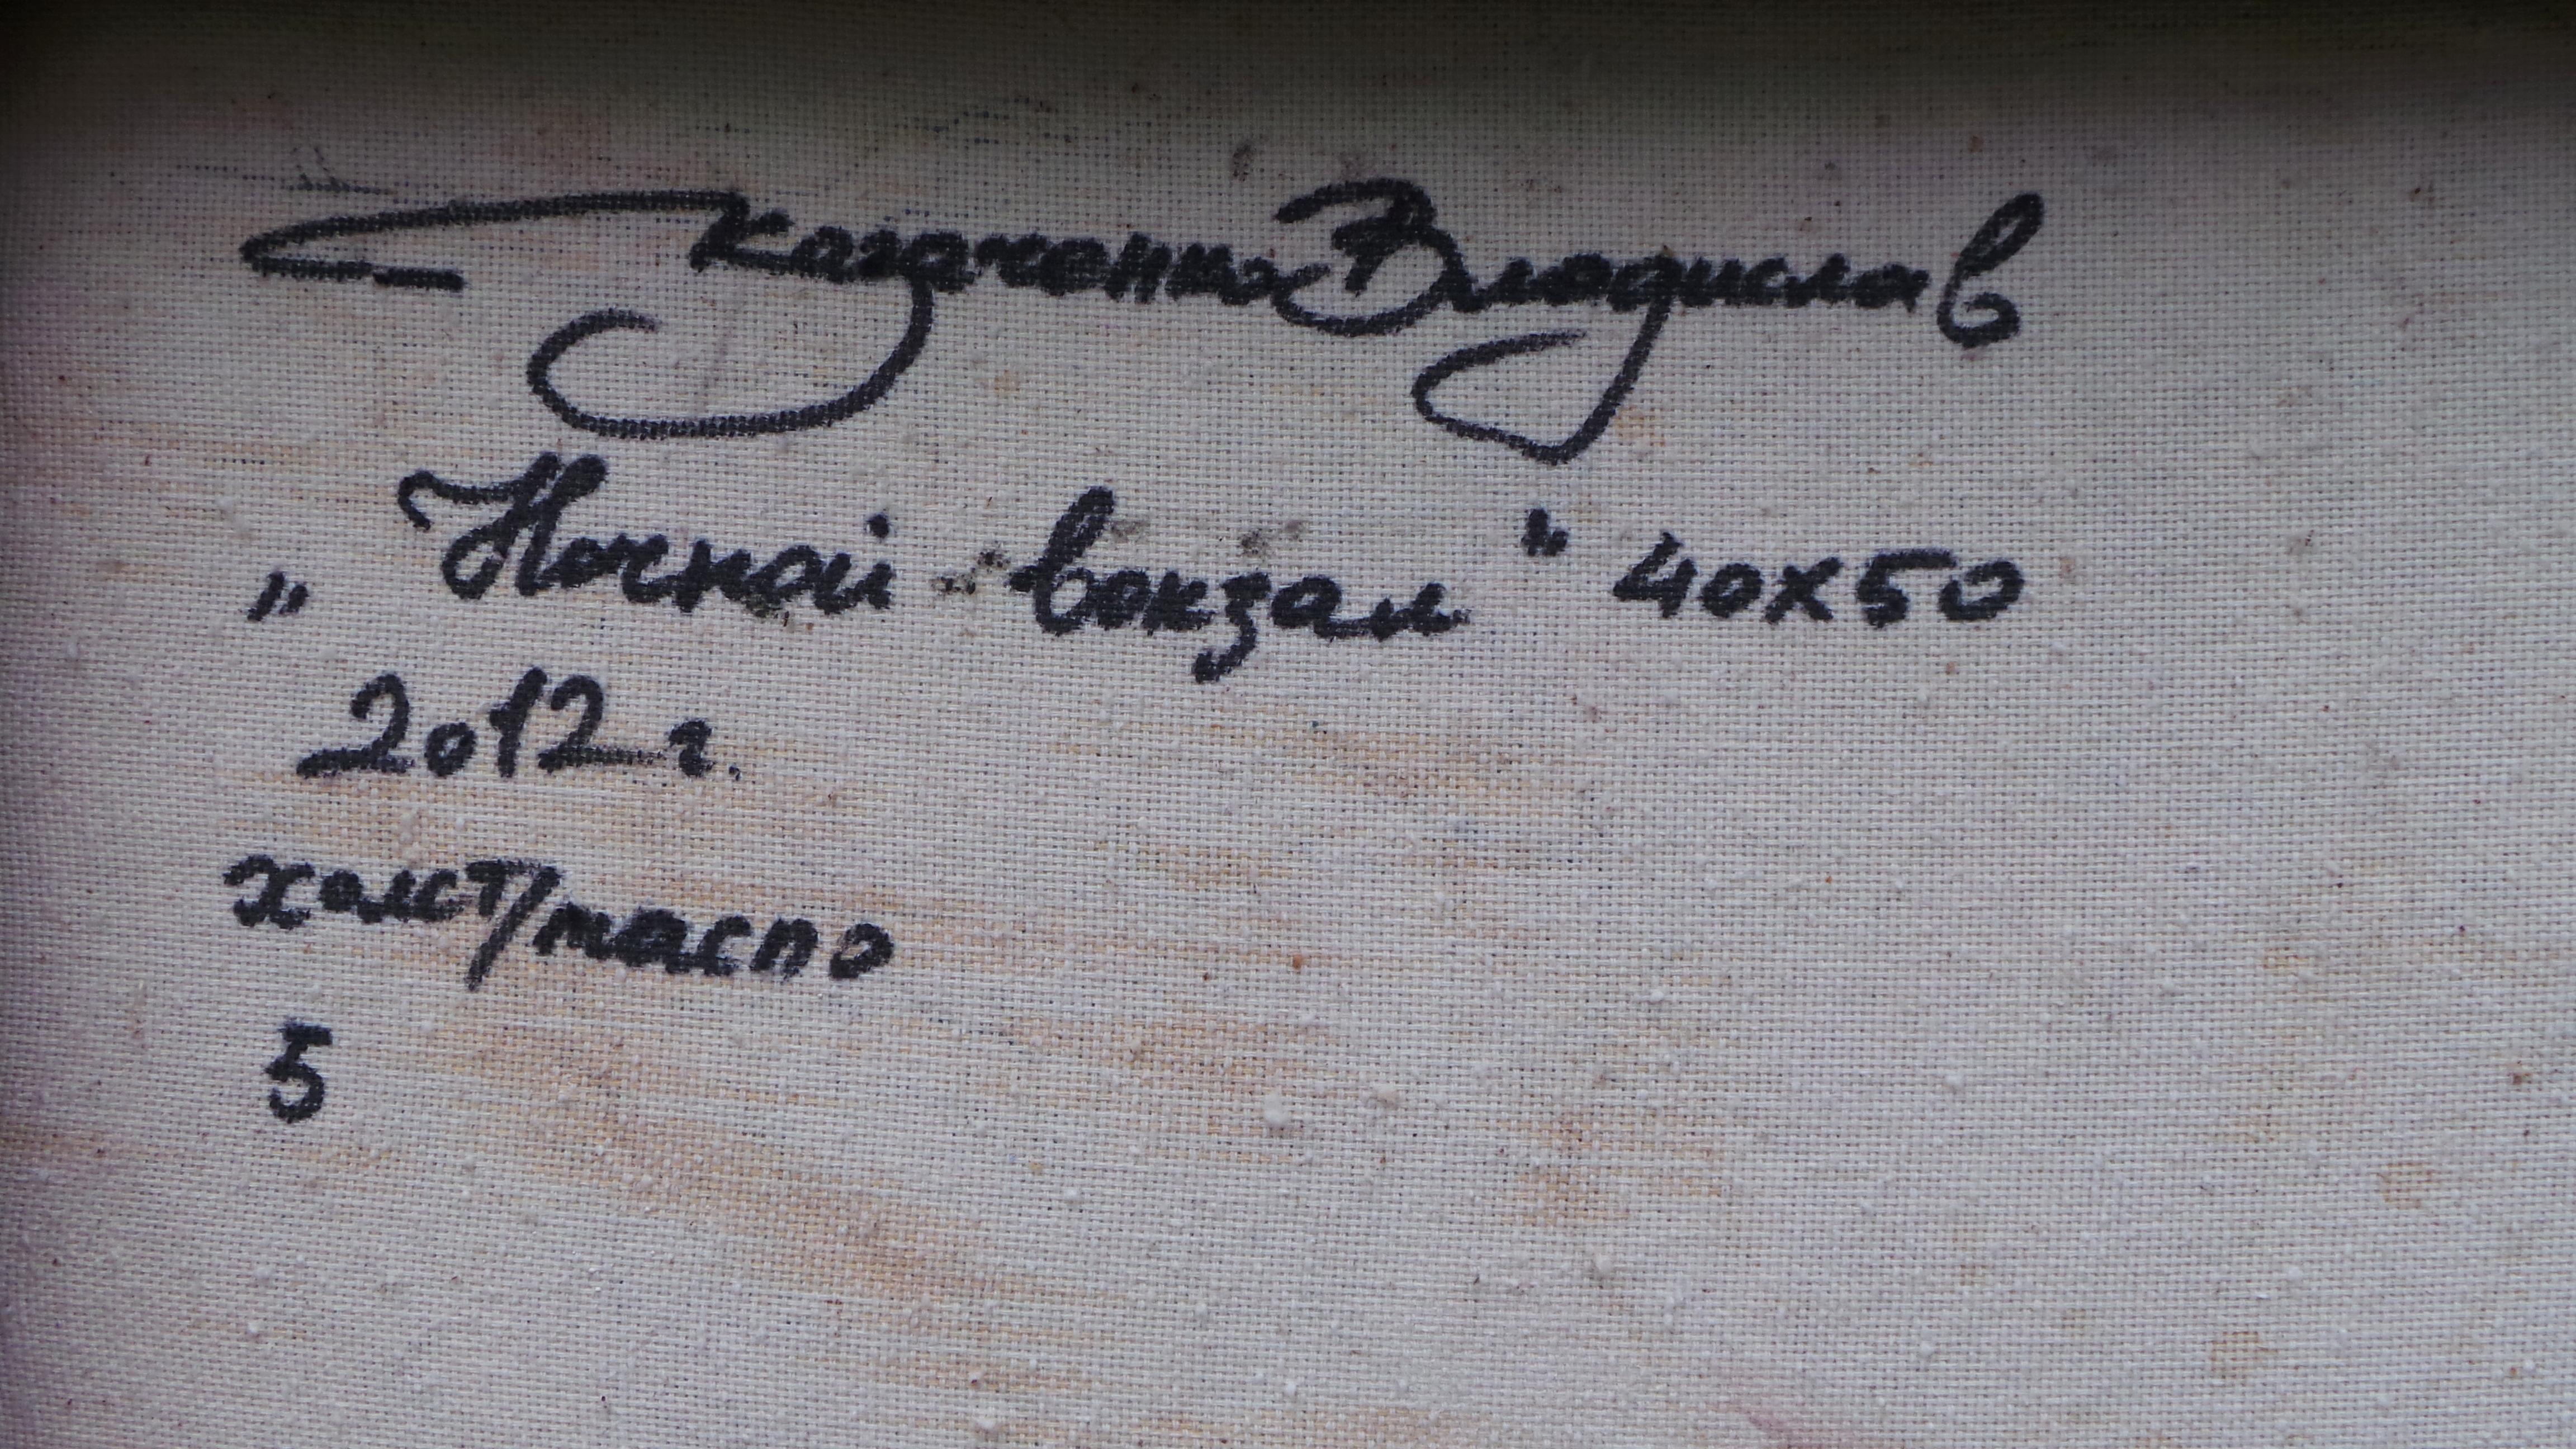 Казаченко Владислав
„Ночной вокзал" 40x50
2012 г.
холст/масло
5